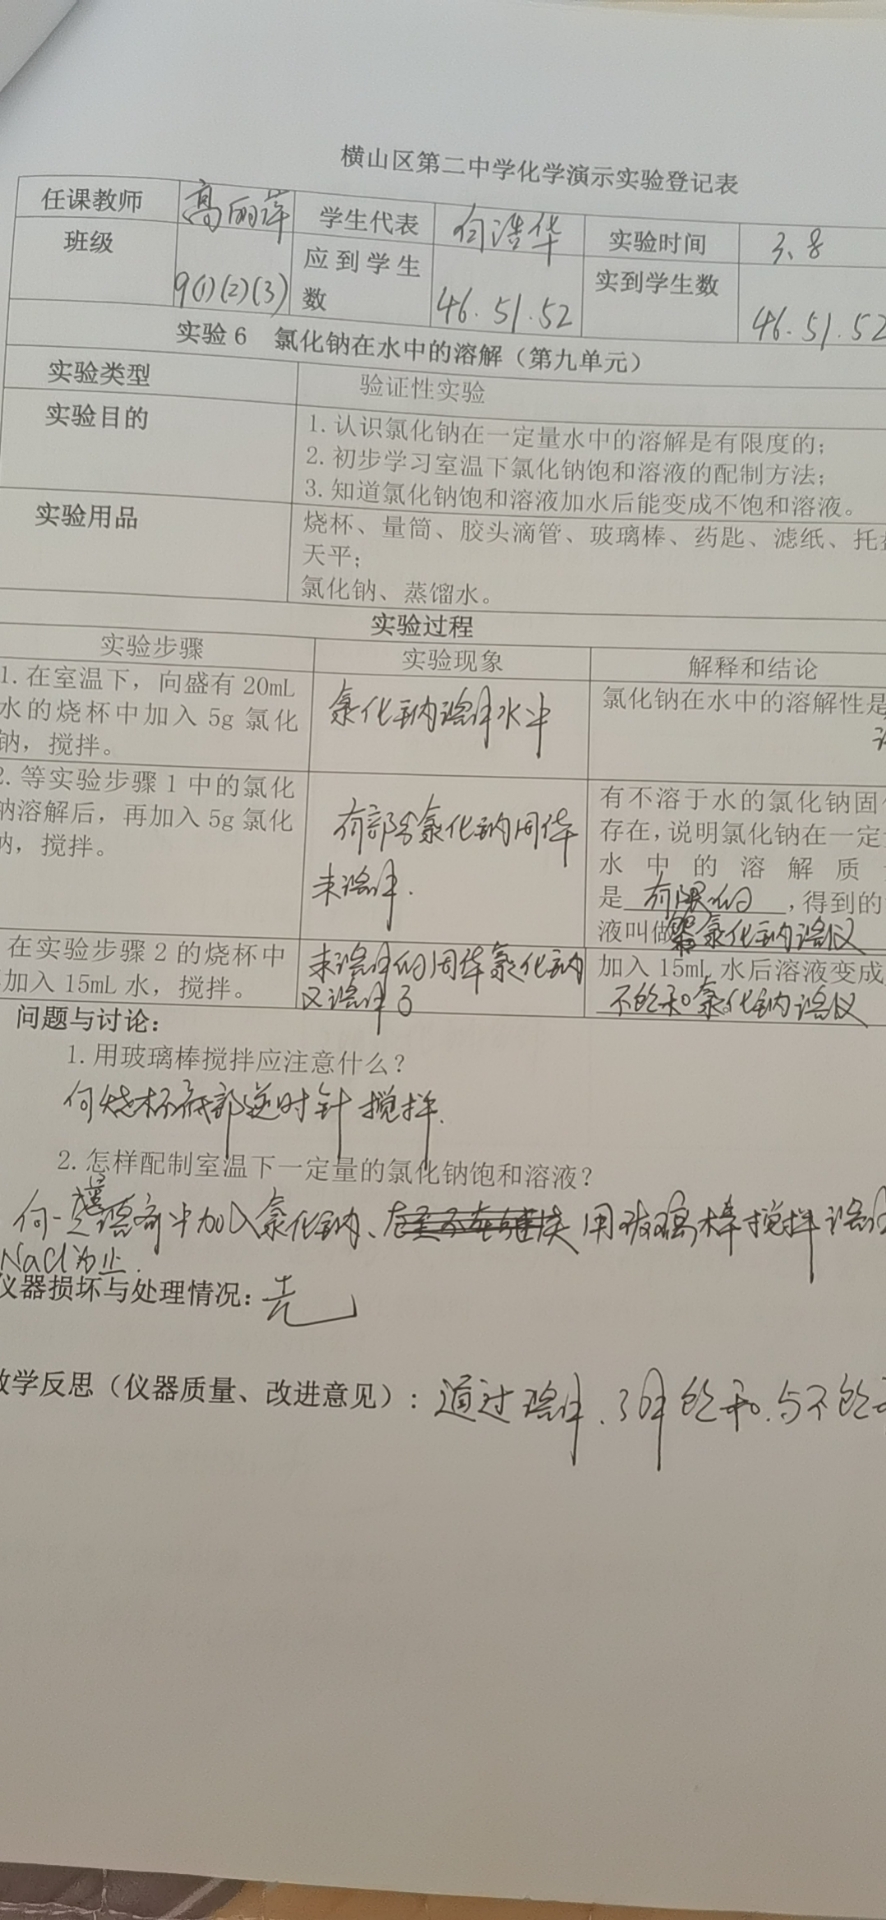 横山区第二中学化学演示实验登记表
任课教师 高丽萍 学生代表 何浩华 实验时间 3、8
班级 9(1)(2)(3) 应到学生数 46.51.52 实到学生数 46.51.52
实验6 氯化钠在水中的溶解（第九单元）
实验类型 验证性实验
实验目的 1.认识氯化钠在一定量水中的溶解是有限度的；
2.初步学习室温下氯化钠饱和溶液的配制方法；
3.知道氯化钠饱和溶液加水后能变成不饱和溶液。
实验用品 烧杯、量筒、胶头滴管、玻璃棒、药匙、滤纸、托
天平；
氯化钠、蒸馏水。
实验过程
实验步骤 实验现象 解释和结论
1.在室温下，向盛有20mL
水的烧杯中加入5g氯化
钠，搅拌。
氯化钠溶解水中
氯化钠在水中的溶解性是
2.等实验步骤1中的氯化
钠溶解后，再加入5g氯化
钠，搅拌。
有部分氯化钠固体
未溶解.
有不溶于水的氯化钠固
存在，说明氯化钠在一定
水中的溶解质
是 有限的 ，得到的
液叫做 氯化钠溶液
在实验步骤2的烧杯中
加入15mL水，搅拌。
未溶解的固体氯化钠
又溶解了
加入15mL水后溶液变成
不饱和氯化钠溶液
问题与讨论：
1.用玻璃棒搅拌应注意什么？
向烧杯底部逆时针搅拌.
2.怎样配制室温下一定量的氯化钠饱和溶液？
向一定量 中加入氯化钠、 用玻璃棒搅拌
NaCl为止.
仪器损坏与处理情况：无
教学反思（仪器质量、改进意见）：通过溶解、了解饱和与不饱